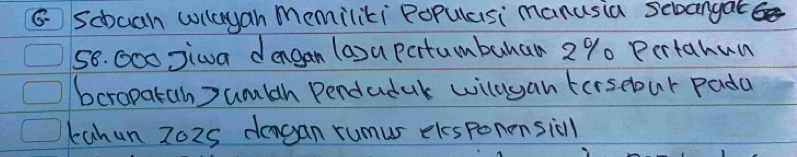 6. Sebuah wilayah memiliki Populasi manusia sebanyak
58.000 Jiwa dengan laju pertumbuhan 2% Pertahun
berapakah Jumlah Penduduk wilayah tersebut pada
tahun 2025 dengan rumus eksponensial